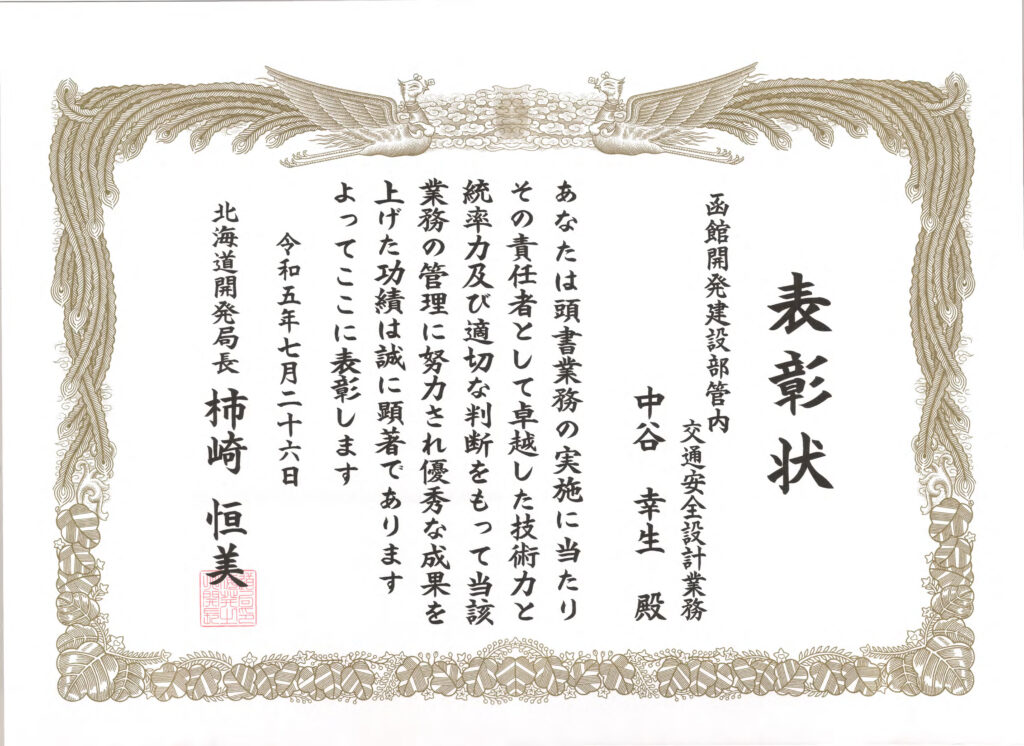 表彰状
函館開発建設部管内
交通安全設計業務
中谷 幸生 殿
あなたは頭書業務の実施に当たり
その責任者として卓越した技術力と
統率力及び適切な判断をもって当該
業務の管理に努力され優秀な成果を
上げた功績は誠に顕著であります
よってここに表彰します
令和五年七月二十六日
北海道開発局長 柿崎 恒美